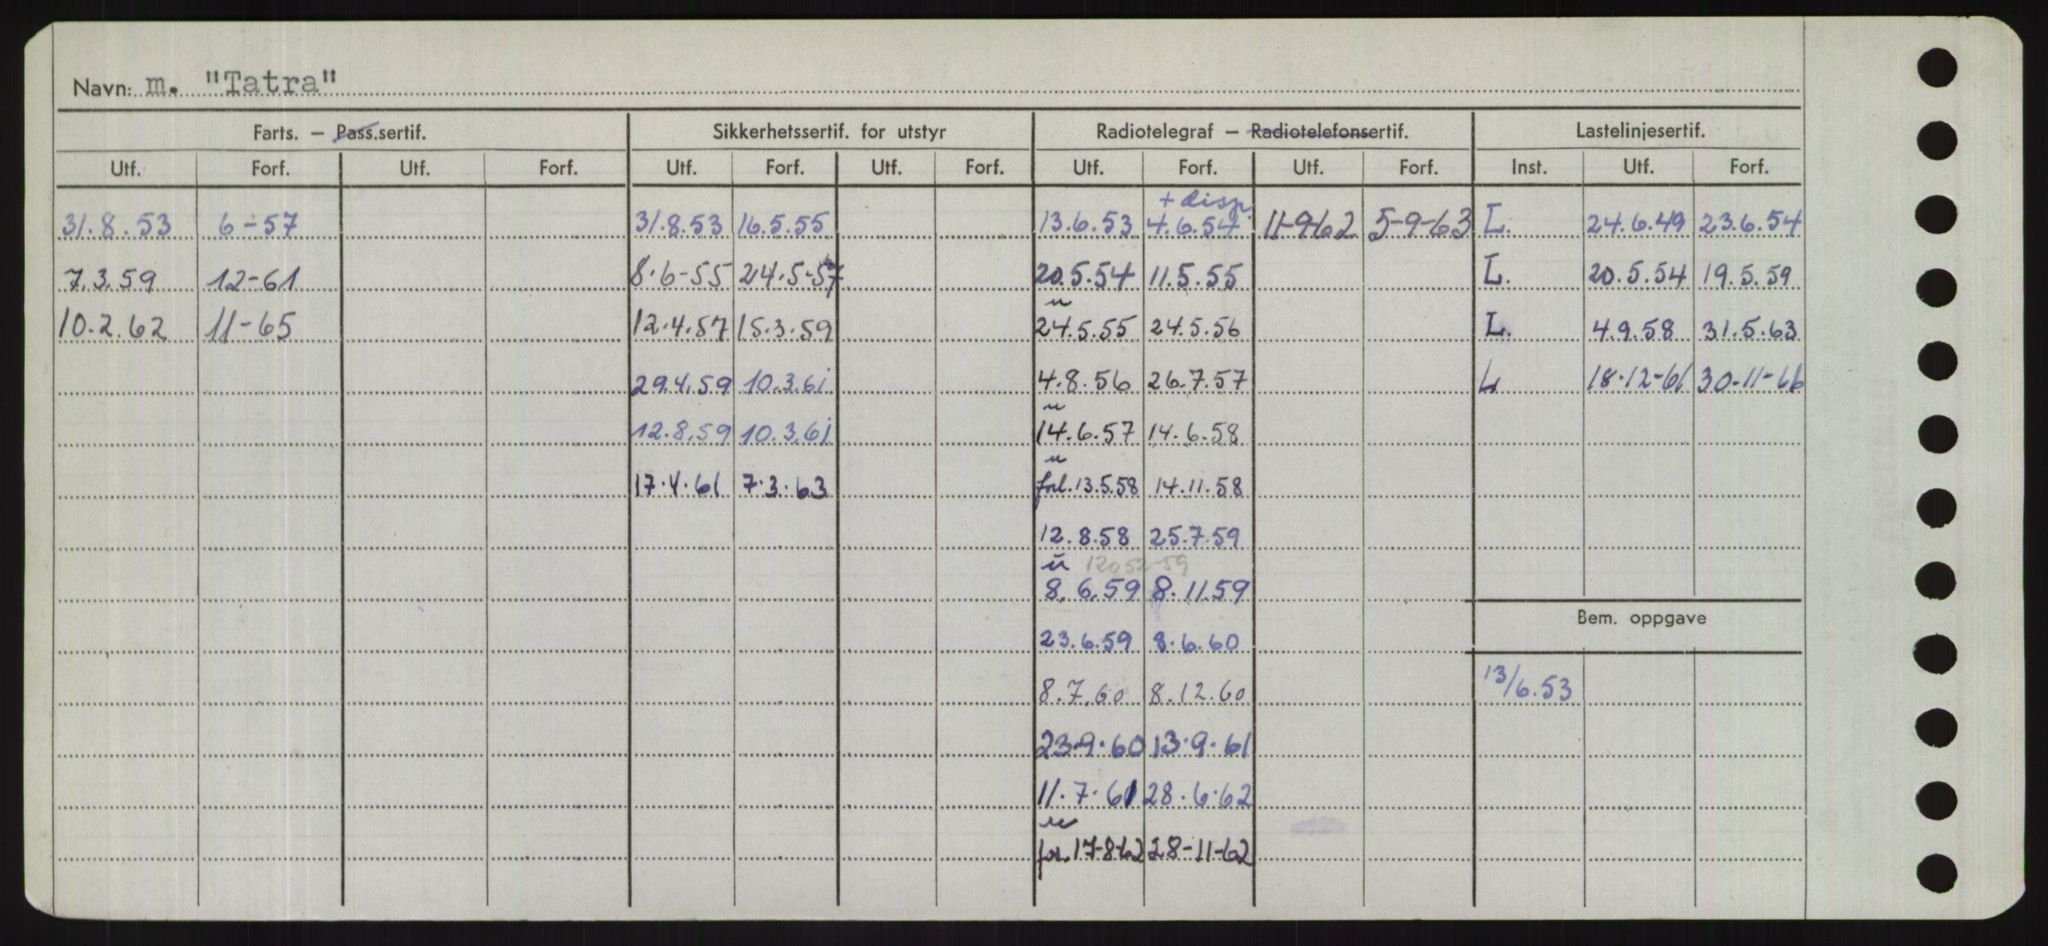 Navn: m. "Tatra"
Farts. — Pass.sertif. Sikkerhetssertif. for utstyr Radiotelegraf — Radiotelefonsertif. Lastelinjesertif.
Utf. Forf. Utf. Forf. Utf. Forf. Utf. Forf. Utf. Forf. Utf. Forf. Inst. Utf. Forf.
+ disp.
31.8.53 6-57 31.8.53 16.5.55 13.6.53 4.6.54 11-9-62 5-9-63 L. 24.6.49 23.6.54
7.3.59 12-61 8.6-55 24.5-57 20.5.54 11.5.55 L. 20.5.54 19.5.59
u
10.2.62 11-65 12.4.57 15.3.59 24.5.55 24.5.56 L. 4.9.58 31.5.63
29.4.59 10.3.61 4.8.56 26.7.57 L 18-12-61 30-11-66
u
12.8.59 10.3.61 14.6.57 14.6.58
u
17.4.61 7.3.63 forl. 13.5.58 14.11.58
12.8.58 25.7.59
u
8.6.59 8.11.59
Bem. oppgave
23.6.59 8.6.60
13/6.53
8.7.60 8.12.60
23-9-60 13.9.61
11.7.61 28.6.62
u
for. 17-8-62 28-11-62